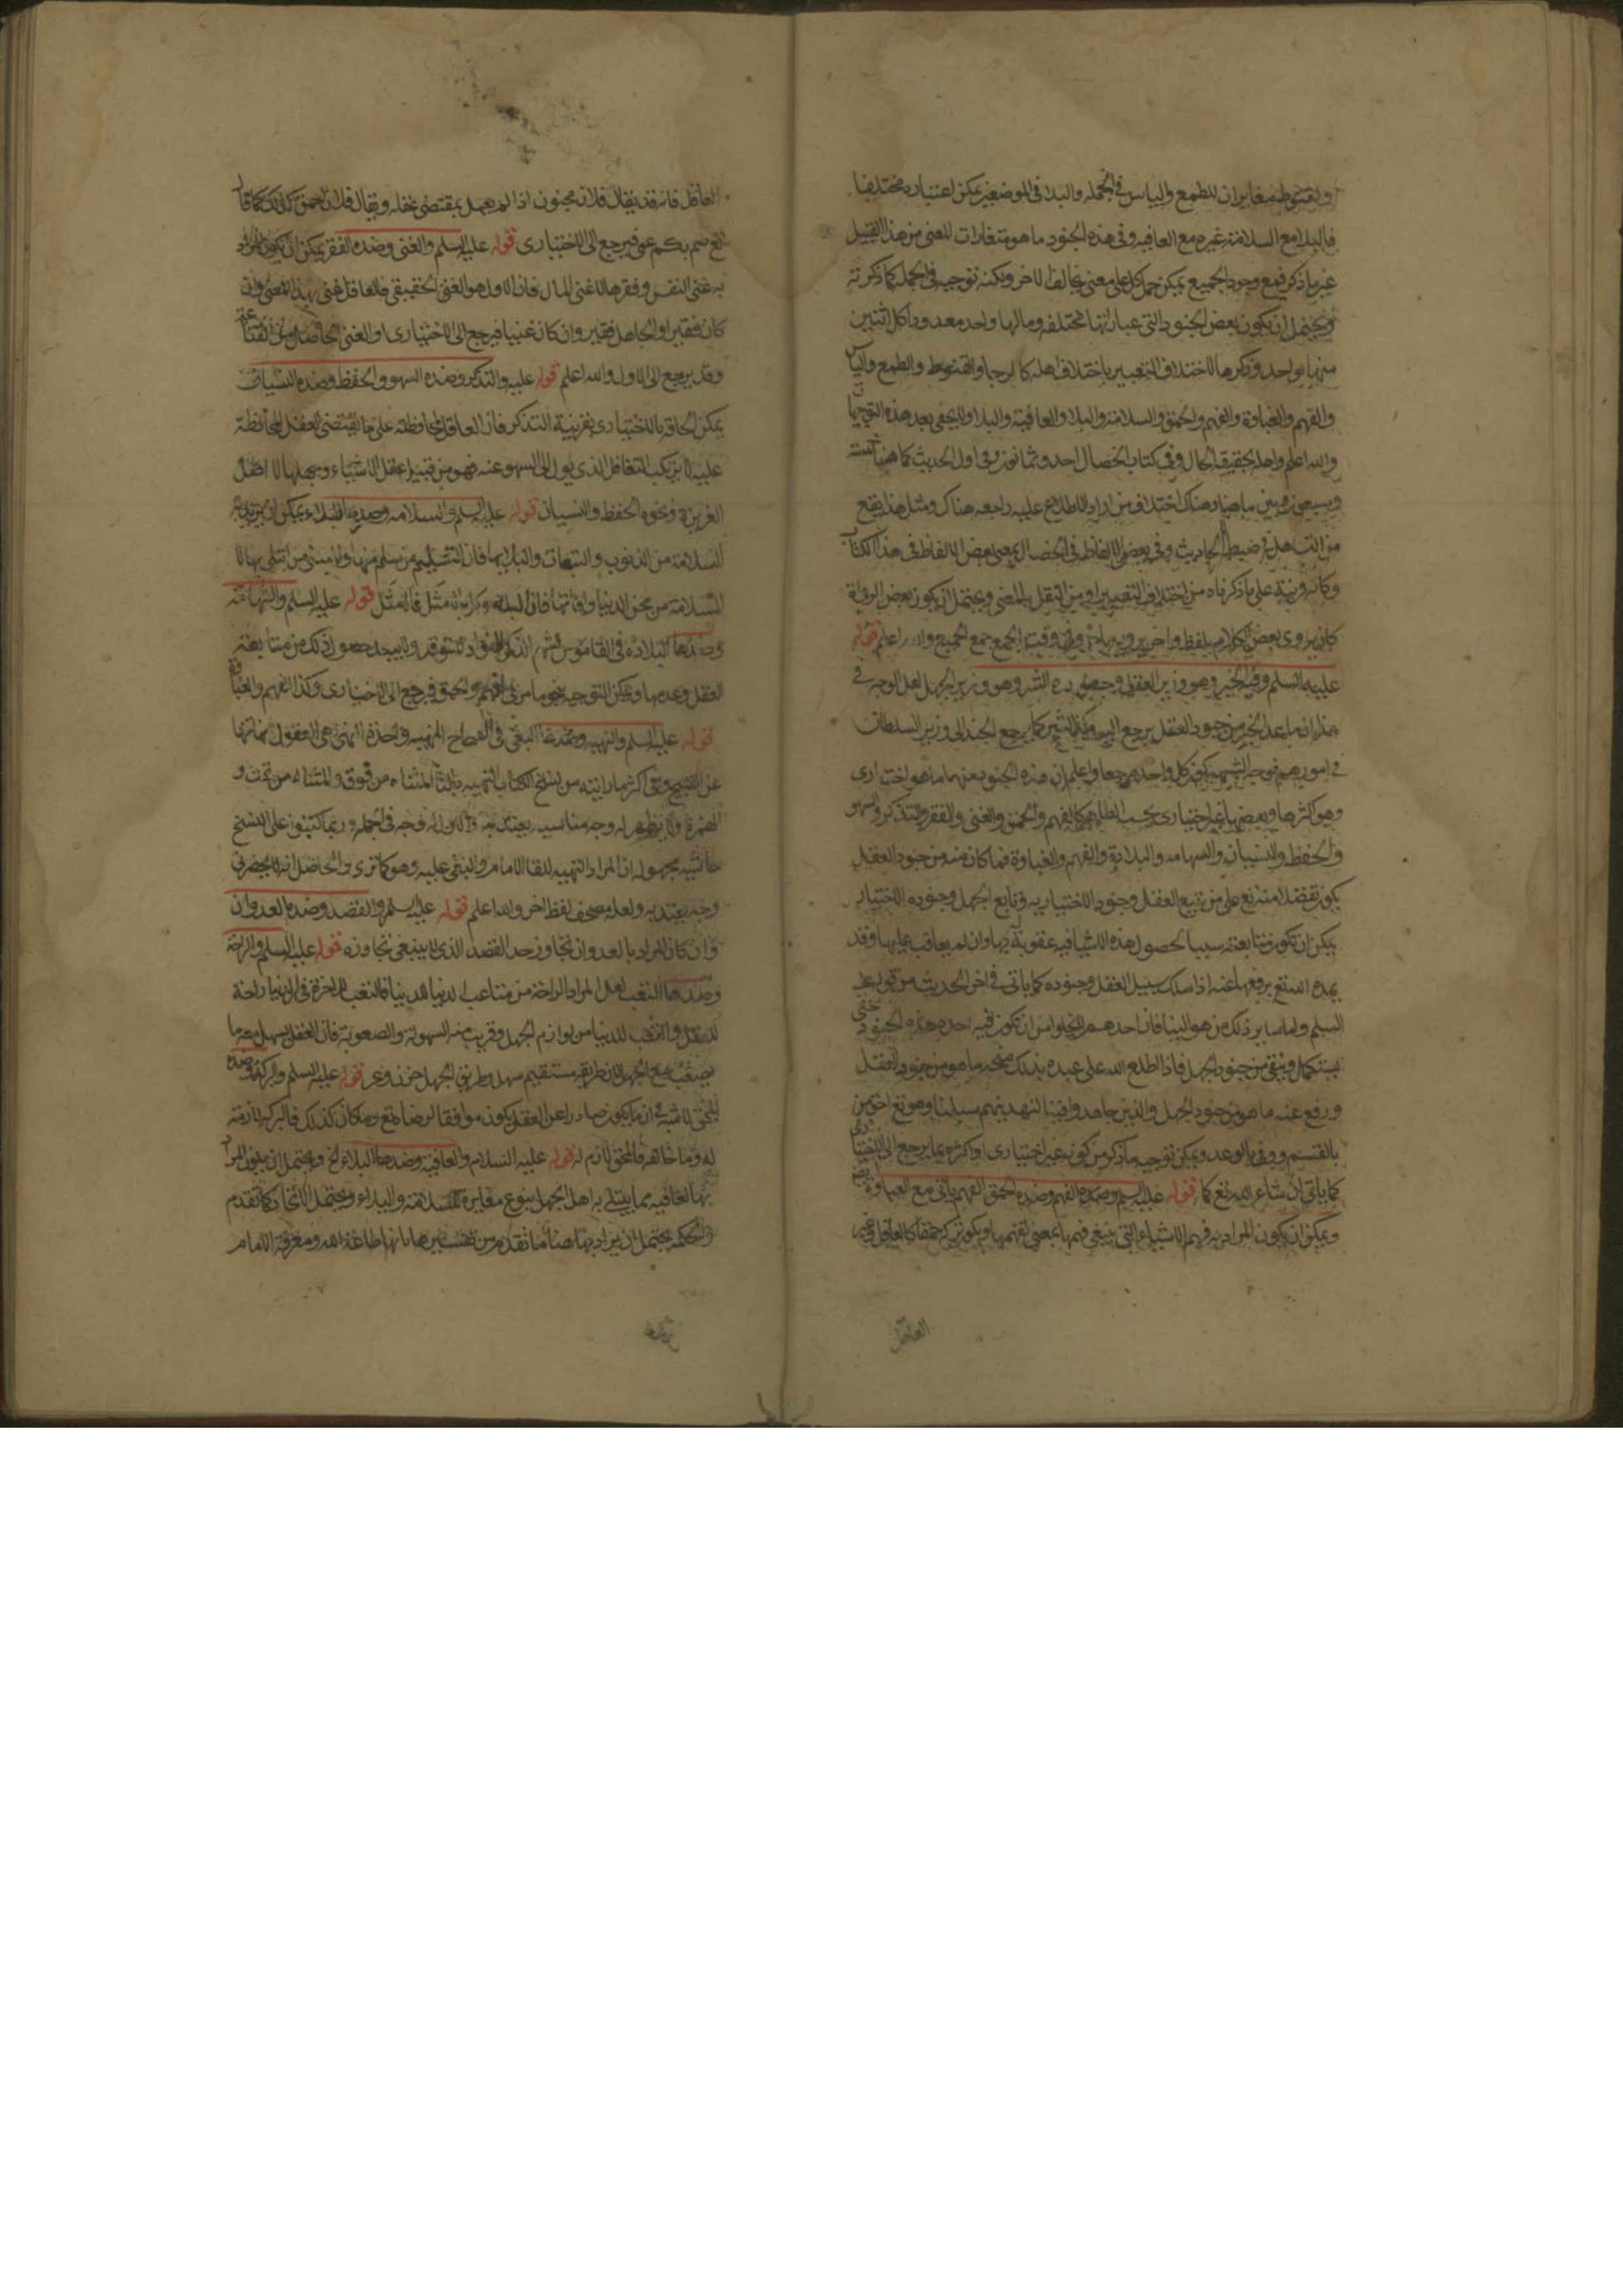 والقنوط مغايران للطمع والياس في الجمله والبلا في الموضعين يمكن اعتباره مختلفا
فالبلا مع السلامة غيره مع العافيه وفي هذه الجنود ما هو متقارب المعنى من هذا القبيل
غير ما ذكر فمع وجود الجميع يمكن حمل كل على معنى يخالف الاخر ويمكنه توجيه في الجمله كما ذكرته
ويحتمل ان يكون بعض الجنود التي عباراتها مختلفه ومالها واحد معدودا كل اثنين
منها بواحد وذكرها لاختلاف التعبير باختلاف اهله كالرجا والقنوط والطمع والياس
والفهم والغباوة والفهم والحمق والسلامة والبلا والعافية والبلا ولا يخفى بعد هذه التوجيهات
والله اعلم واهله بحقيقة الحال وفي كتاب الخصال احد وثمانون وفي اول الحديث كما هنا خمسة
وسبعون وبين ما هنا وهناك اختلاف من اراد الاطلاع عليه راجعه هناك ومثل هذا يقع
من التساهل في ضبط الحاديث وفي بعض الالفاظ في الخصال بمعنى بعض الالفاظ في هذا الكتاب
وكانه قرينة على ما ذكرناه من اختلاف التعبير او من النقل بالمعنى ويحتمل ان يكون بعض الرواة
كان يروي بعض الكلام بلفظ واخر يرويه باخر وقت الجمع جمع الجميع والله اعلم قوله
عليه السلم وفيه الخير وهو وزير العقل وجعل ضده الشر وهو وزير الجهل لعل الوجه في
هذا ان ما عدا الخير من جنود العقل يرجع اليه وكذا الشر كما يرجع الجند الى وزير السلطان
في امورهم فوجه التسميه كون كل واحد مرجعا واعلم ان هذه الجنود منها ما هو اختياري
وهو اكثرها وبعضها غير اختياري بحسب الظاهر كالفهم والحمق والغنى والفقر والتذكر والسهو
والحفظ والنسيان والشهامه والبلادة والفهم والغباوة فما كان منه من جنود العقل
يكون تفضلا منه تع على من يتبع العقل وجنوده الاختياريه وتابع الجهل وجنوده الاختياريه
يمكن ان تكون متابعته سببا لحصول هذه الاشيا فيه عقوبة له بها وان لم يعاقب عليها وقد
يمده الله تع برفعها عنه اذا سلك سبيل العقل وجنوده كما ياتي في اخر الحديث من قوله عليه
السلم واما ساير ذلك من هوالينا فان احدهم لا يخلو من ان تكون فيه احد هذه الجنود حتى
يستكمل وينقى من جنود الجهل فاذا اطلع الله على عبده بذلك منحه ما هو من جنود العقل
ورفع عنه ما هو من جنود الجهل والذين جاهدوا فينا لنهدينهم سبلنا وهو تع
بالقسم ووفى بالوعد ويمكن توجيه ما ذكر من كونه غير اختياري او اكثره بما يرجع الى الاختياري
كما ياتي ان شاء الله تع كما قوله عليه السلم وضده الفهم وضده الحمق الفهم ياتي مع الغباوة
ويمكن ان يكون المراد به فهم الاشياء التي ينبغي فهمها بمعنى تفهمها ويكون تركه حمقا كالعاقل وغير
العاقل
العاقل فانه قد يقال فلان مجنون اذا لم يعمل بمقتضى عقله ويقال فلان احمق كذلك كما قال
تع صم بكم عمي فيرجع الى الاختياري قوله عليه السلم والغنى وضده الفقر يمكن ان يكون المراد
به غنى النفس وفقرها لا غنى المال فان الاول هو الغنى الحقيقي فالعاقل غني بهذا المعنى وان
كان فقيرا والجاهل فقير وان كان غنيا فيرجع الى الاختياري او الغنى الحاصل من القناعة
وقد يرجع الى الاول والله اعلم قوله عليه والتذكر وضده السهو والحفظ وضده النسيان
يمكن الحاقه بالاختياري بقرينة التذكر فان العاقل لمحافظته على ما يقتضي العقل المحافظة
عليه لا يرتكب التغافل الذي يول الى السهو عنه فهو من قبيل عقل الاشياء وجهلها لا اصل
الغريزة ونحوه الحفظ والنسيان قوله عليه السلم والسلامه وضدها البلاء يمكن ان يريد به
السلامة من الذنوب والتبعات والبلا بها فان السليم من سلم منها والمبتلى من ابتلي بها لا
السلامة من محن الدنيا وافاتها فان البلا موكل بالامثل فالامثل قوله عليه السلم والشهامة
وضدها البلادة في القاموس الشهم الذكي الفؤاد المتوقد ولا يبعد حصول ذلك من متابعة
العقل وعدمها ويمكن التوجيه بنحو ما مر في الفهم والحمق فيرجع الى الاختياري وكذا الفهم والغباوة
قوله عليه السلم والنهيه وضدها البغي في الصحاح النهيه واحدة النهى هي العقول لنها تنهى
عن القبيح وفي اكثر ما رايته من نسخ الكتاب التهيه بالتا المثناة من فوق والمثناة من تحت و
الهمزة ولا يظهر له وجه مناسب يعتد به
حاشية مجهوله ان المراد التهيه للقا الامام والبغي عليه وهو كما ترى والحاصل انه لا يحضرني
وجه يعتد به ولعله مصحف لفظ اخر والله اعلم قوله عليه السلم والقصد وضده العدوان
وان كان المراد بالعدوان تجاوز حد القصد الذي لا ينبغي تجاوزه قوله عليه السلم والراحة
وضدها التعب لعل المراد الراحة من متاعب الدنيا للدنيا فالتعب للاخرة في الدنيا راحة
للعقل والتعب للدنيا من لوازم الجهل وقريب منه السهولة والصعوبة فان العقل يسهل معه ما
يصعب مع الجهل لان طريقه مستقيم سهل وطريق الجهل حزن وعر قوله عليه السلم والبركه وضده
المحق لا شبهة في ان ما يكون صادرا عن العقل يكون موافقا لرضا الله تع وما كان كذلك فالبركه لازمة
له وما خالفه فالمحق لازم له قوله عليه السلام والعافية وضدها البلاء الخ ويحتمل ان يكون المراد
بها العافيه مما يبتلي به اهل الجهل بنوع مغايرة للسلامة والبلاء ويحتمل الاتحاد كما تقدم
والحكمه يحتمل ان يراد بها هنا ما تقدم من تفسيرها بانها طاعة الله ومعرفة الامام